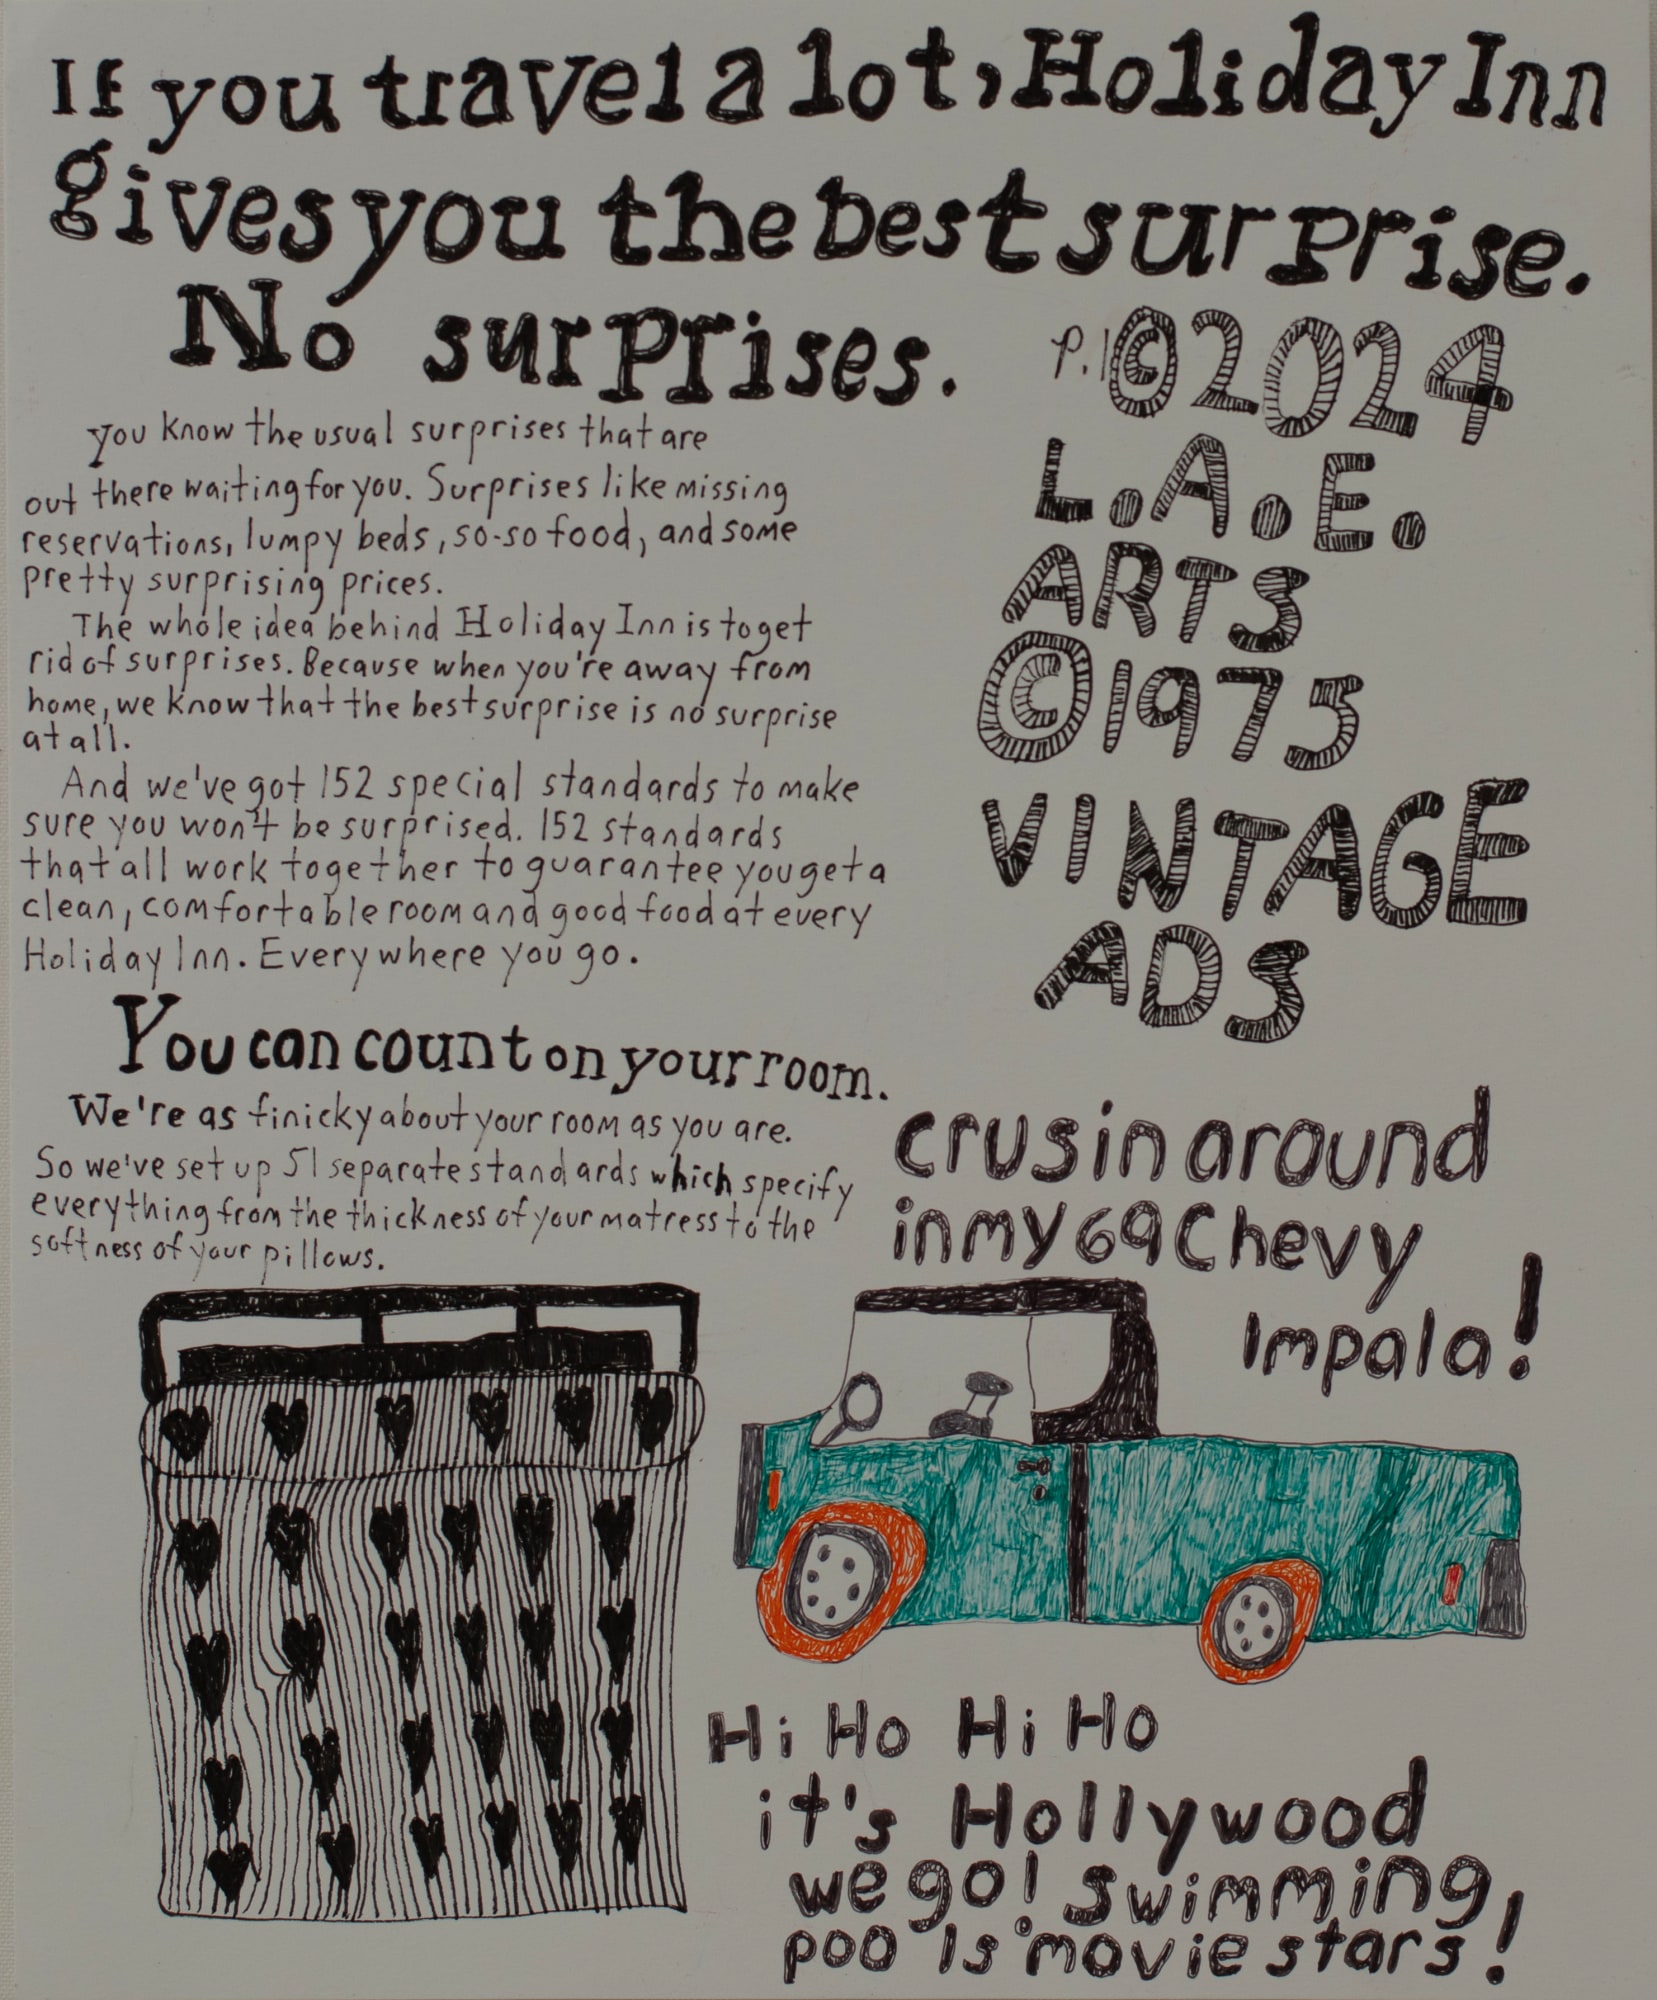 If you travel a lot, Holiday Inn
gives you the best surprise.
No surprises.
you know the usual surprises that are
out there waiting for you. Surprises like missing
reservations, lumpy beds, so-so food, and some
pretty surprising prices.
The whole idea behind Holiday Inn is to get
rid of surprises. Because when you're away from
home, we know that the best surprise is no surprise
at all.
And we've got 152 special standards to make
sure you won't be surprised. 152 standards
that all work together to guarantee you get a
clean, comfortable room and good food at every
Holiday Inn. Everywhere you go.
You can count on your room.
We're as finicky about your room as you are.
So we've set up 51 separate standards which specify
everything from the thickness of your matress to the
softness of your pillows.
P.1 © 2024
L.A.E.
ARTS
© 1975
VINTAGE
ADS
crusin around
in my 69 Chevy
Impala!
Hi Ho Hi Ho
it's Hollywood
we go! swimming
pools movie stars!